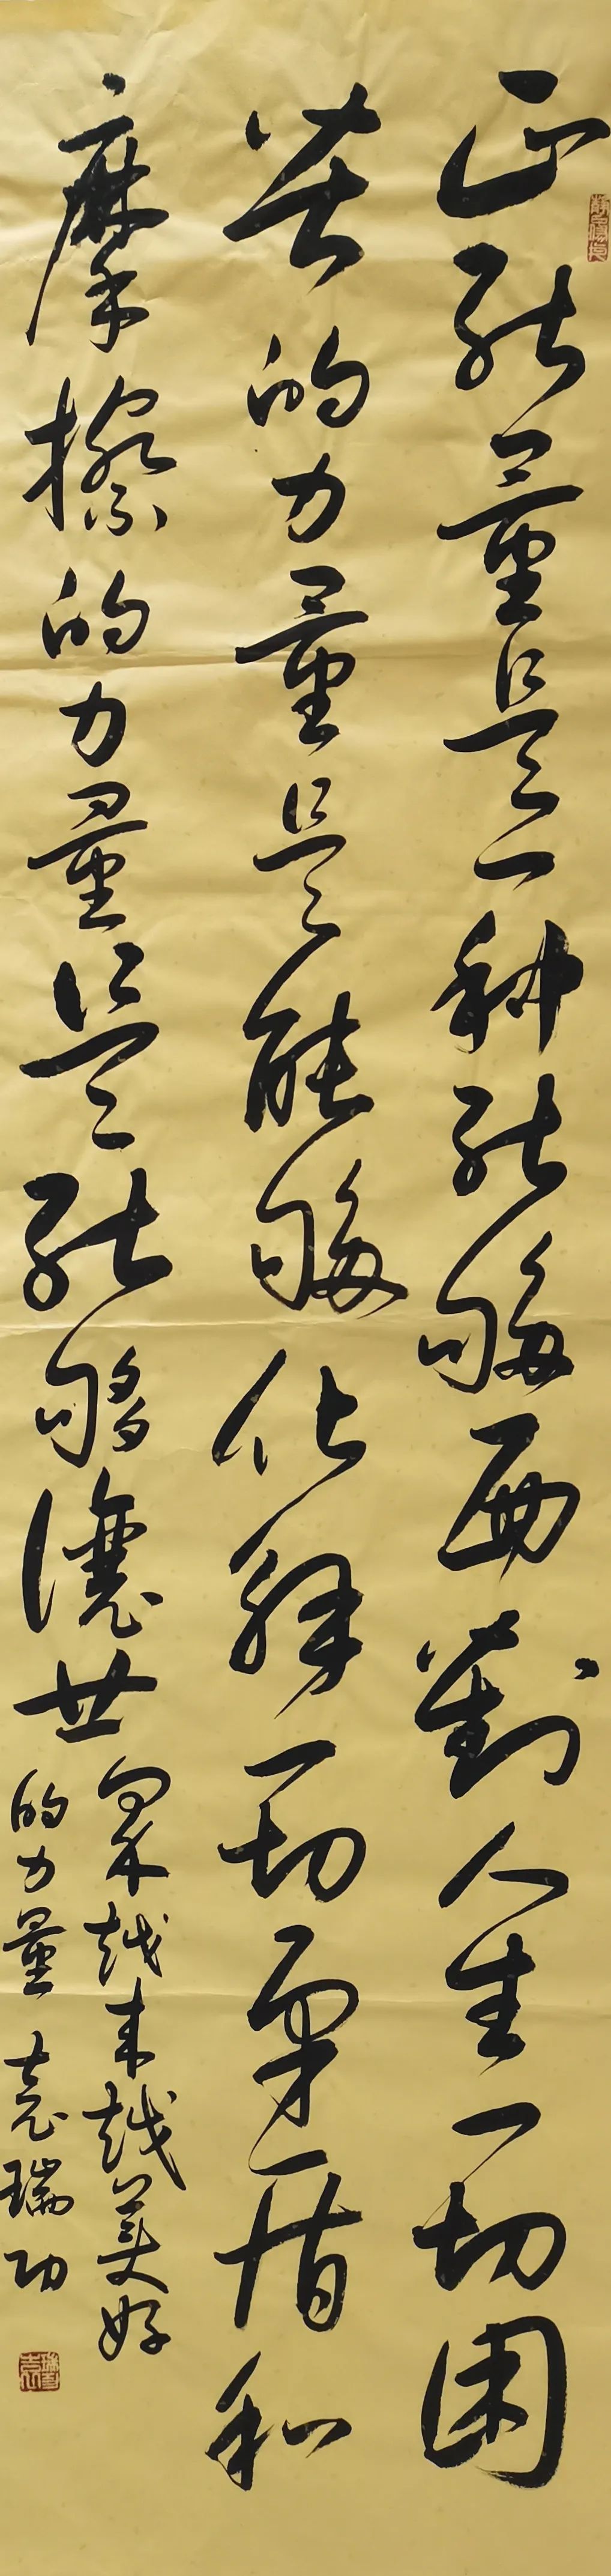 正能量是一种能够面對人生一切困
苦的力量是能够化解一切矛盾和
摩擦的力量是能够讓世
界越来越美好
的力量 袁瑞功